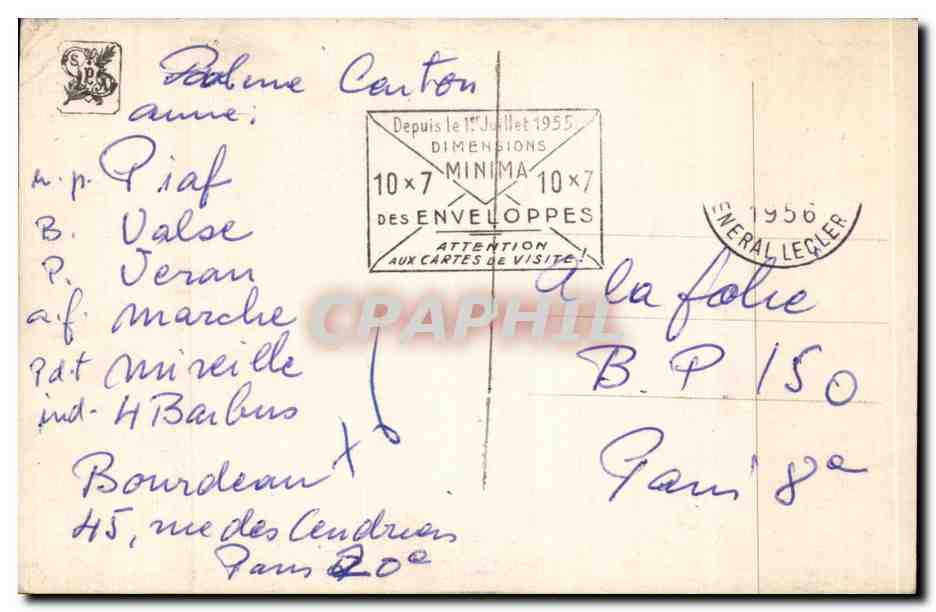 SPA
Pauline Carton
anne:
n. p. Piaf
B. Valse
P. Veran
a.f. marche
pdt mireille
ind- 4 Barbus
Bourdeau X 6
45, rue des Cendriers
Paris 20e
Depuis le 1er Juillet 1955
DIMENSIONS
MINIMA
10 x 7 10 x 7
DES ENVELOPPES
ATTENTION
AUX CARTES DE VISITE!
1956
ENERAL LECLER
CPAPHIL
A la folie
B.P 150
Paris 8e